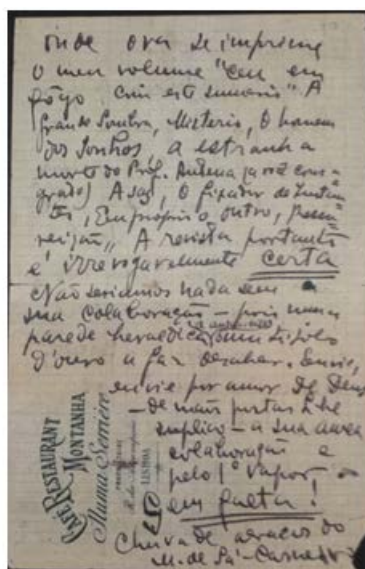 onde ora se imprime
o meu volume "Ceu em
fôgo" com este sumario: "A
Grande Sombra, Misterio, O homem
dos Sonhos, a estranha
morte do Prof. Antena (a você consa-
grado) Asas, O fixador de Instan-
tes, Eu-proprio o outro, Ressu-
reição". A revista portanto
é irrevogavelmente certa
Não seriamos nada sem a
sua colaboração — pois numa
parede heraldica um tijolo
d'ouro a faz desabar. Envie,
envie por amor de Deus
— de mãos postas lhe
suplico — a sua
colaboração e
pelo 1º vapor,
em
Chuva de abraços do
M. de Sá-Carneiro
CAFÉ RESTAURANT
MONTANHA
LISBOA